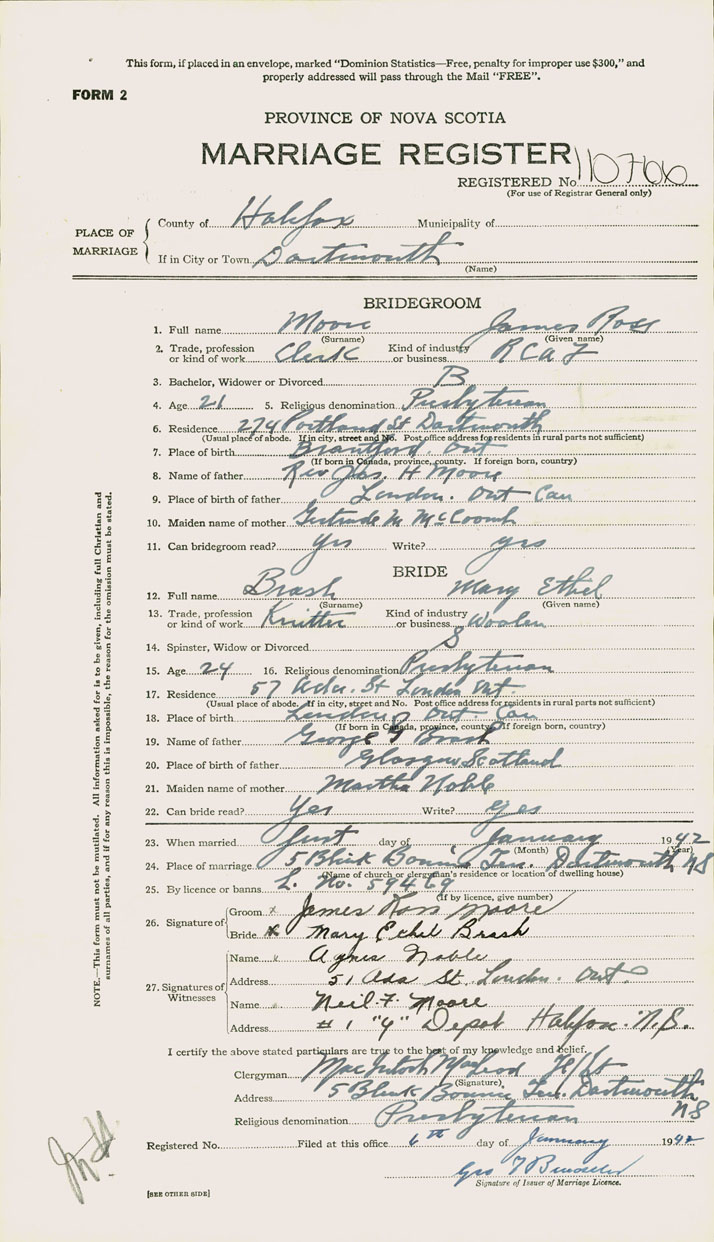 This form, if placed in an envelope, marked "Dominion Statistics—Free, penalty for improper use $300," and
properly addressed will pass through the Mail "FREE".
FORM 2
PROVINCE OF NOVA SCOTIA
MARRIAGE REGISTER
REGISTERED No. 110766
(For use of Registrar General only)
PLACE OF MARRIAGE
County of Halifax Municipality of
If in City or Town Dartmouth
(Name)
BRIDEGROOM
1. Full name Moore James Ross
(Surname) (Given name)
2. Trade, profession or kind of work Clerk Kind of industry or business R C A F
3. Bachelor, Widower or Divorced B
4. Age 21 5. Religious denomination Presbyterian
6. Residence 274 Portland St Dartmouth
(Usual place of abode. If in city, street and No. Post office address for residents in rural parts not sufficient)
7. Place of birth Brantford. Ont
(If born in Canada, province, county. If foreign born, country)
8. Name of father Rev Jas. H Moore
9. Place of birth of father London. Ont Can
10. Maiden name of mother Gertrude M McCoomb
11. Can bridegroom read? yes Write? yes
BRIDE
12. Full name Brash Mary Ethel
(Surname) (Given name)
13. Trade, profession or kind of work Knitter Kind of industry or business Woolen
14. Spinster, Widow or Divorced S
15. Age 24 16. Religious denomination Presbyterian
17. Residence 57 St London Ont.
(Usual place of abode. If in city, street and No. Post office address for residents in rural parts not sufficient)
18. Place of birth London Ont Can
(If born in Canada, province, county. If foreign born, country)
19. Name of father George Brash
20. Place of birth of father Glasgow Scotland
21. Maiden name of mother Martha Noble
22. Can bride read? Yes Write? yes
23. When married first day of January 1942
(Month) (Year)
24. Place of marriage 5 Blink Bonnie Ter. Dartmouth NS
(Name of church or clergyman's residence or location of dwelling house)
25. By licence or banns L. No. 59469
(If by licence, give number)
26. Signature of
Groom x James Ross Moore
Bride x Mary Ethel Brash
27. Signatures of Witnesses
Name x Agnes Noble
Address 51 Ada St. London. Ont.
Name Neil F. Moore
Address # 1 "Y" Depot Halifax. N.S.
I certify the above stated particulars are true to the best of my knowledge and belief.
Clergyman MacIntosh MacLeod
(Signature)
Address 5 Blink Bonnie Ter. Dartmouth NS
Religious denomination Presbyterian
Registered No. Filed at this office 6th day of January 1942
Geo
Signature of Issuer of Marriage Licence.
[SEE OTHER SIDE]
NOTE.—This form must not be mutilated. All information asked for is to be given, including full Christian and
surnames of all parties, and if for any reason this is impossible, the reason for the omission must be stated.